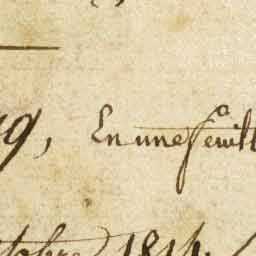 19, En une feuill
tobre 1814.